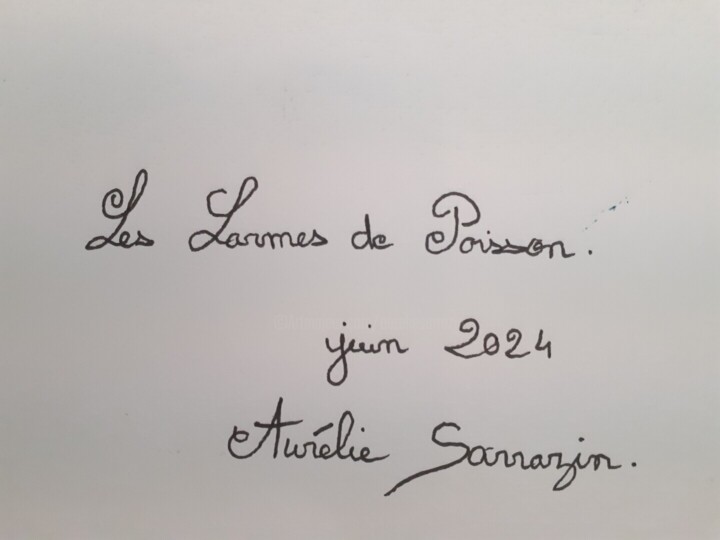 Les Larmes de Poisson.
juin 2024
Aurélie Sarrazin.